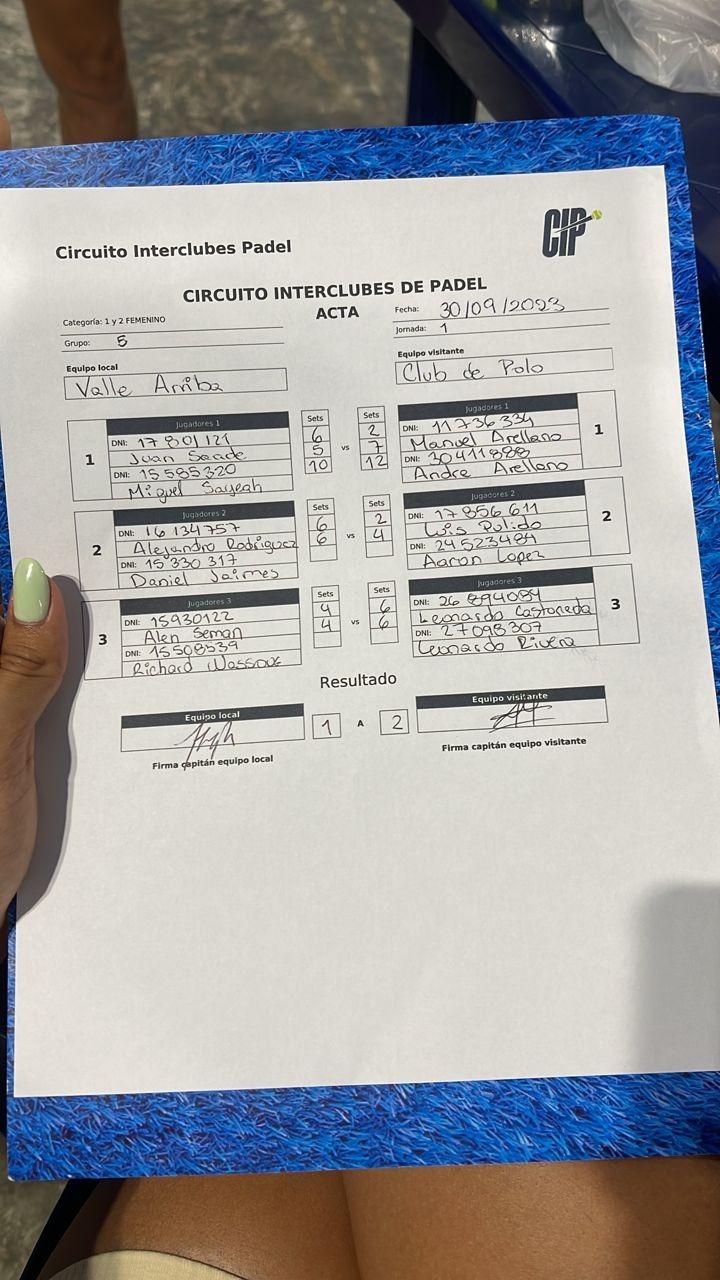 CIP
Circuito Interclubes Padel
CIRCUITO INTERCLUBES DE PADEL
ACTA
Categoría: 1 y 2 FEMENINO
Grupo: 5
Fecha: 30/09/2023
Jornada: 1
Equipo local
Valle Arriba
Equipo visitante
Club de Polo
1
Jugadores 1
DNI: 17801121
Juan Saade
DNI: 15585320
Miguel Sayeah
Sets
6
5
10
vs
Sets
2
7
12
Jugadores 1
DNI: 11736334
Manuel Arellano
DNI: 30411888
Andre Arellano
1
2
Jugadores 2
DNI: 16134757
Alejandro Rodriguez
DNI: 15330317
Daniel Jaimes
Sets
6
6
vs
Sets
2
4
Jugadores 2
DNI: 17856611
Luis Pulido
DNI: 24523484
Aaron Lopez
2
3
Jugadores 3
DNI: 15930122
Alen Seman
DNI: 15508539
Richard
Sets
4
4
vs
Sets
6
6
Jugadores 3
DNI: 26894084
Leonardo Castaneda
DNI: 27098307
Leonardo Rivera
3
Resultado
Equipo local
1 A 2
Equipo visitante
Firma capitán equipo local
Firma capitán equipo visitante